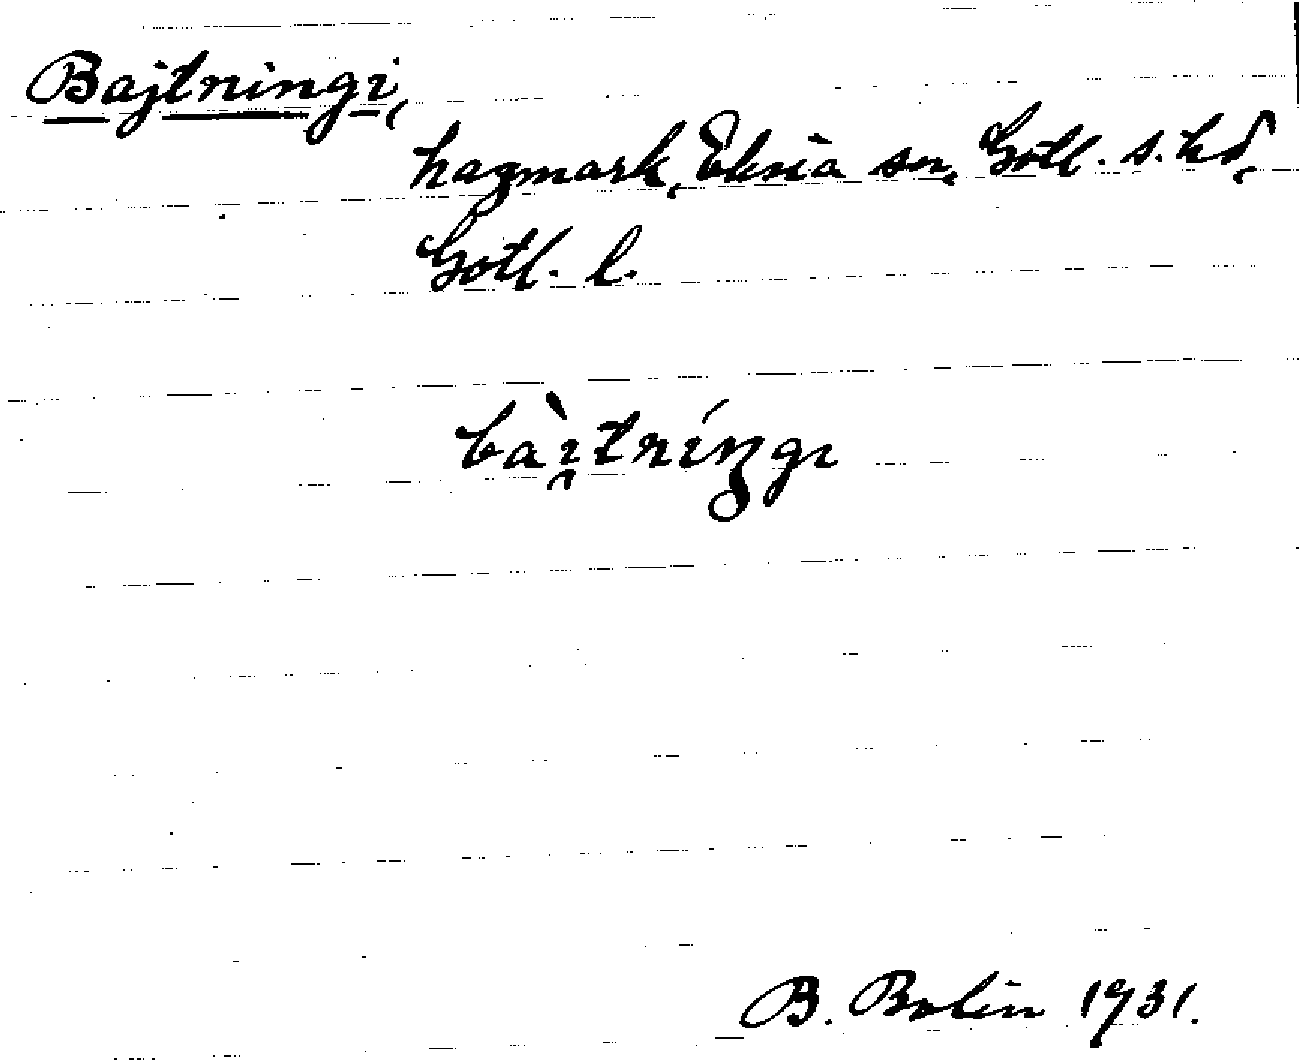 Bajtningi,
hagmark, Eksta sn, Gotl. s. hd,
Gotl. l.
bàı̯tníŋgı
B. Bolin 1931.